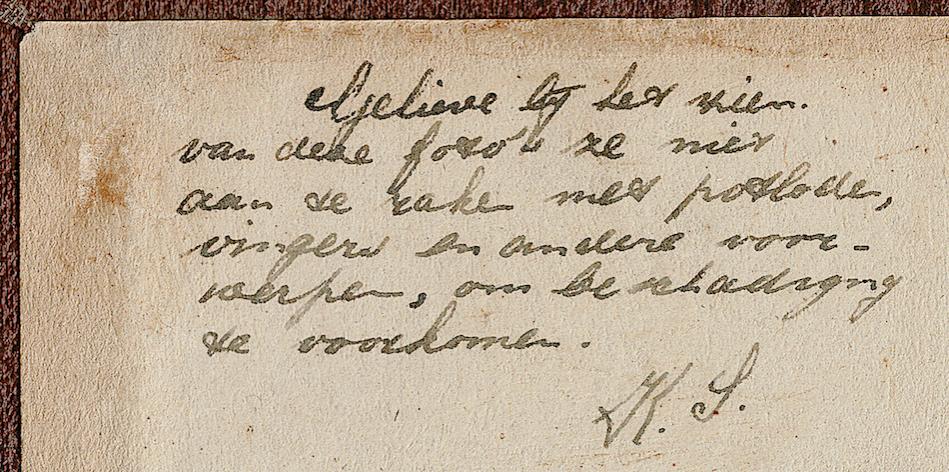 Gelieve bij het zien
van deze foto's ze niet
aan te raken met potloden,
vingers en andere voor-
werpen, om beschadiging
te voorkomen.
K. S.